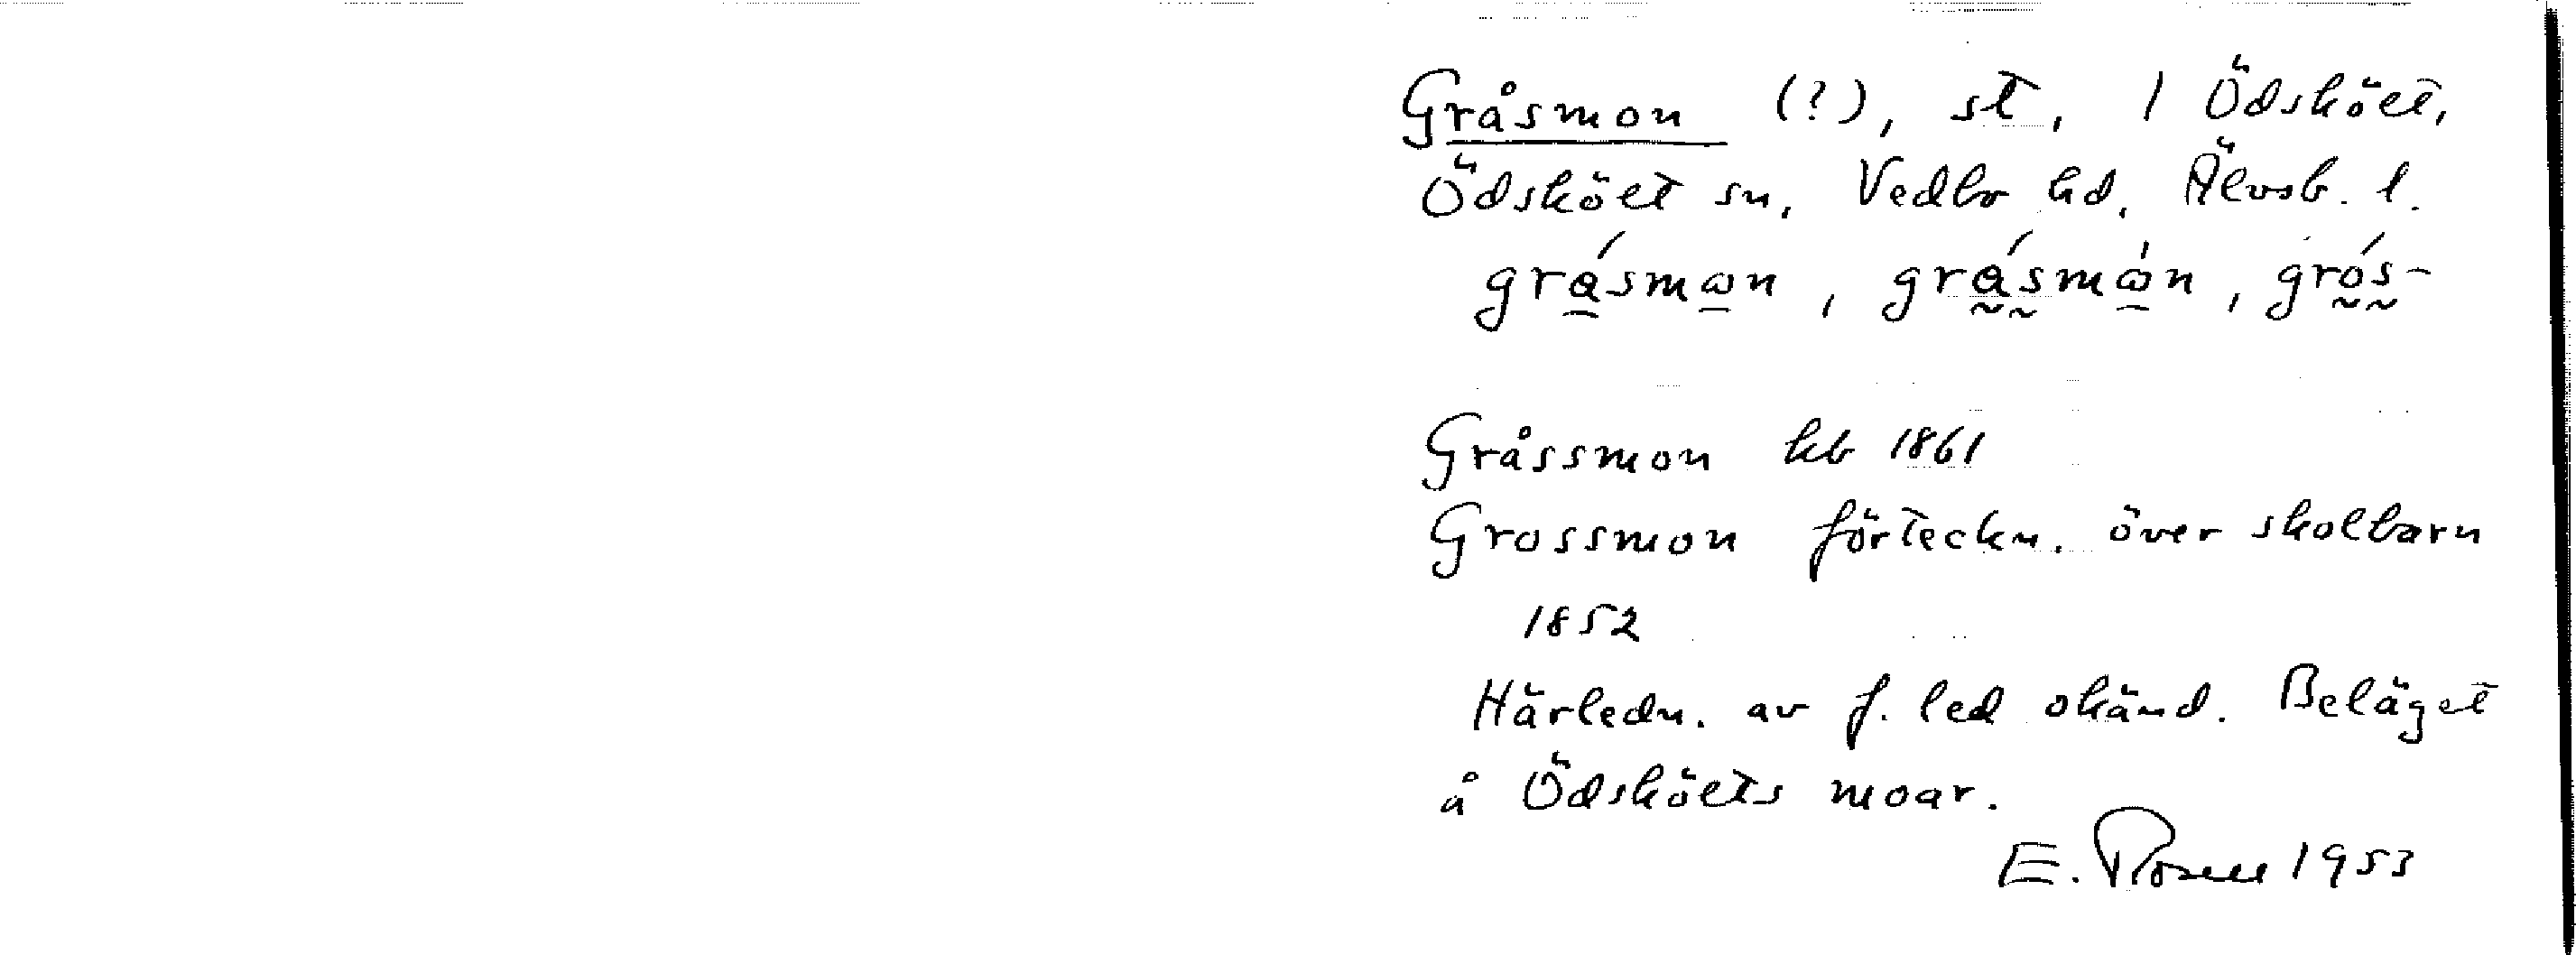 Gråsmon (?), st, 1 Ödskölt,
Ödskölt sn, Vedbo hd, Älvsb. l.
grásmɷn, grásmɷ̀n, grós-
Gråssmon kb 1861
Grossmon förteckn. över skolbarn
1852
Härledn. av f. led okänd. Beläget
å Ödskölts moar.
E. Rosell 1953